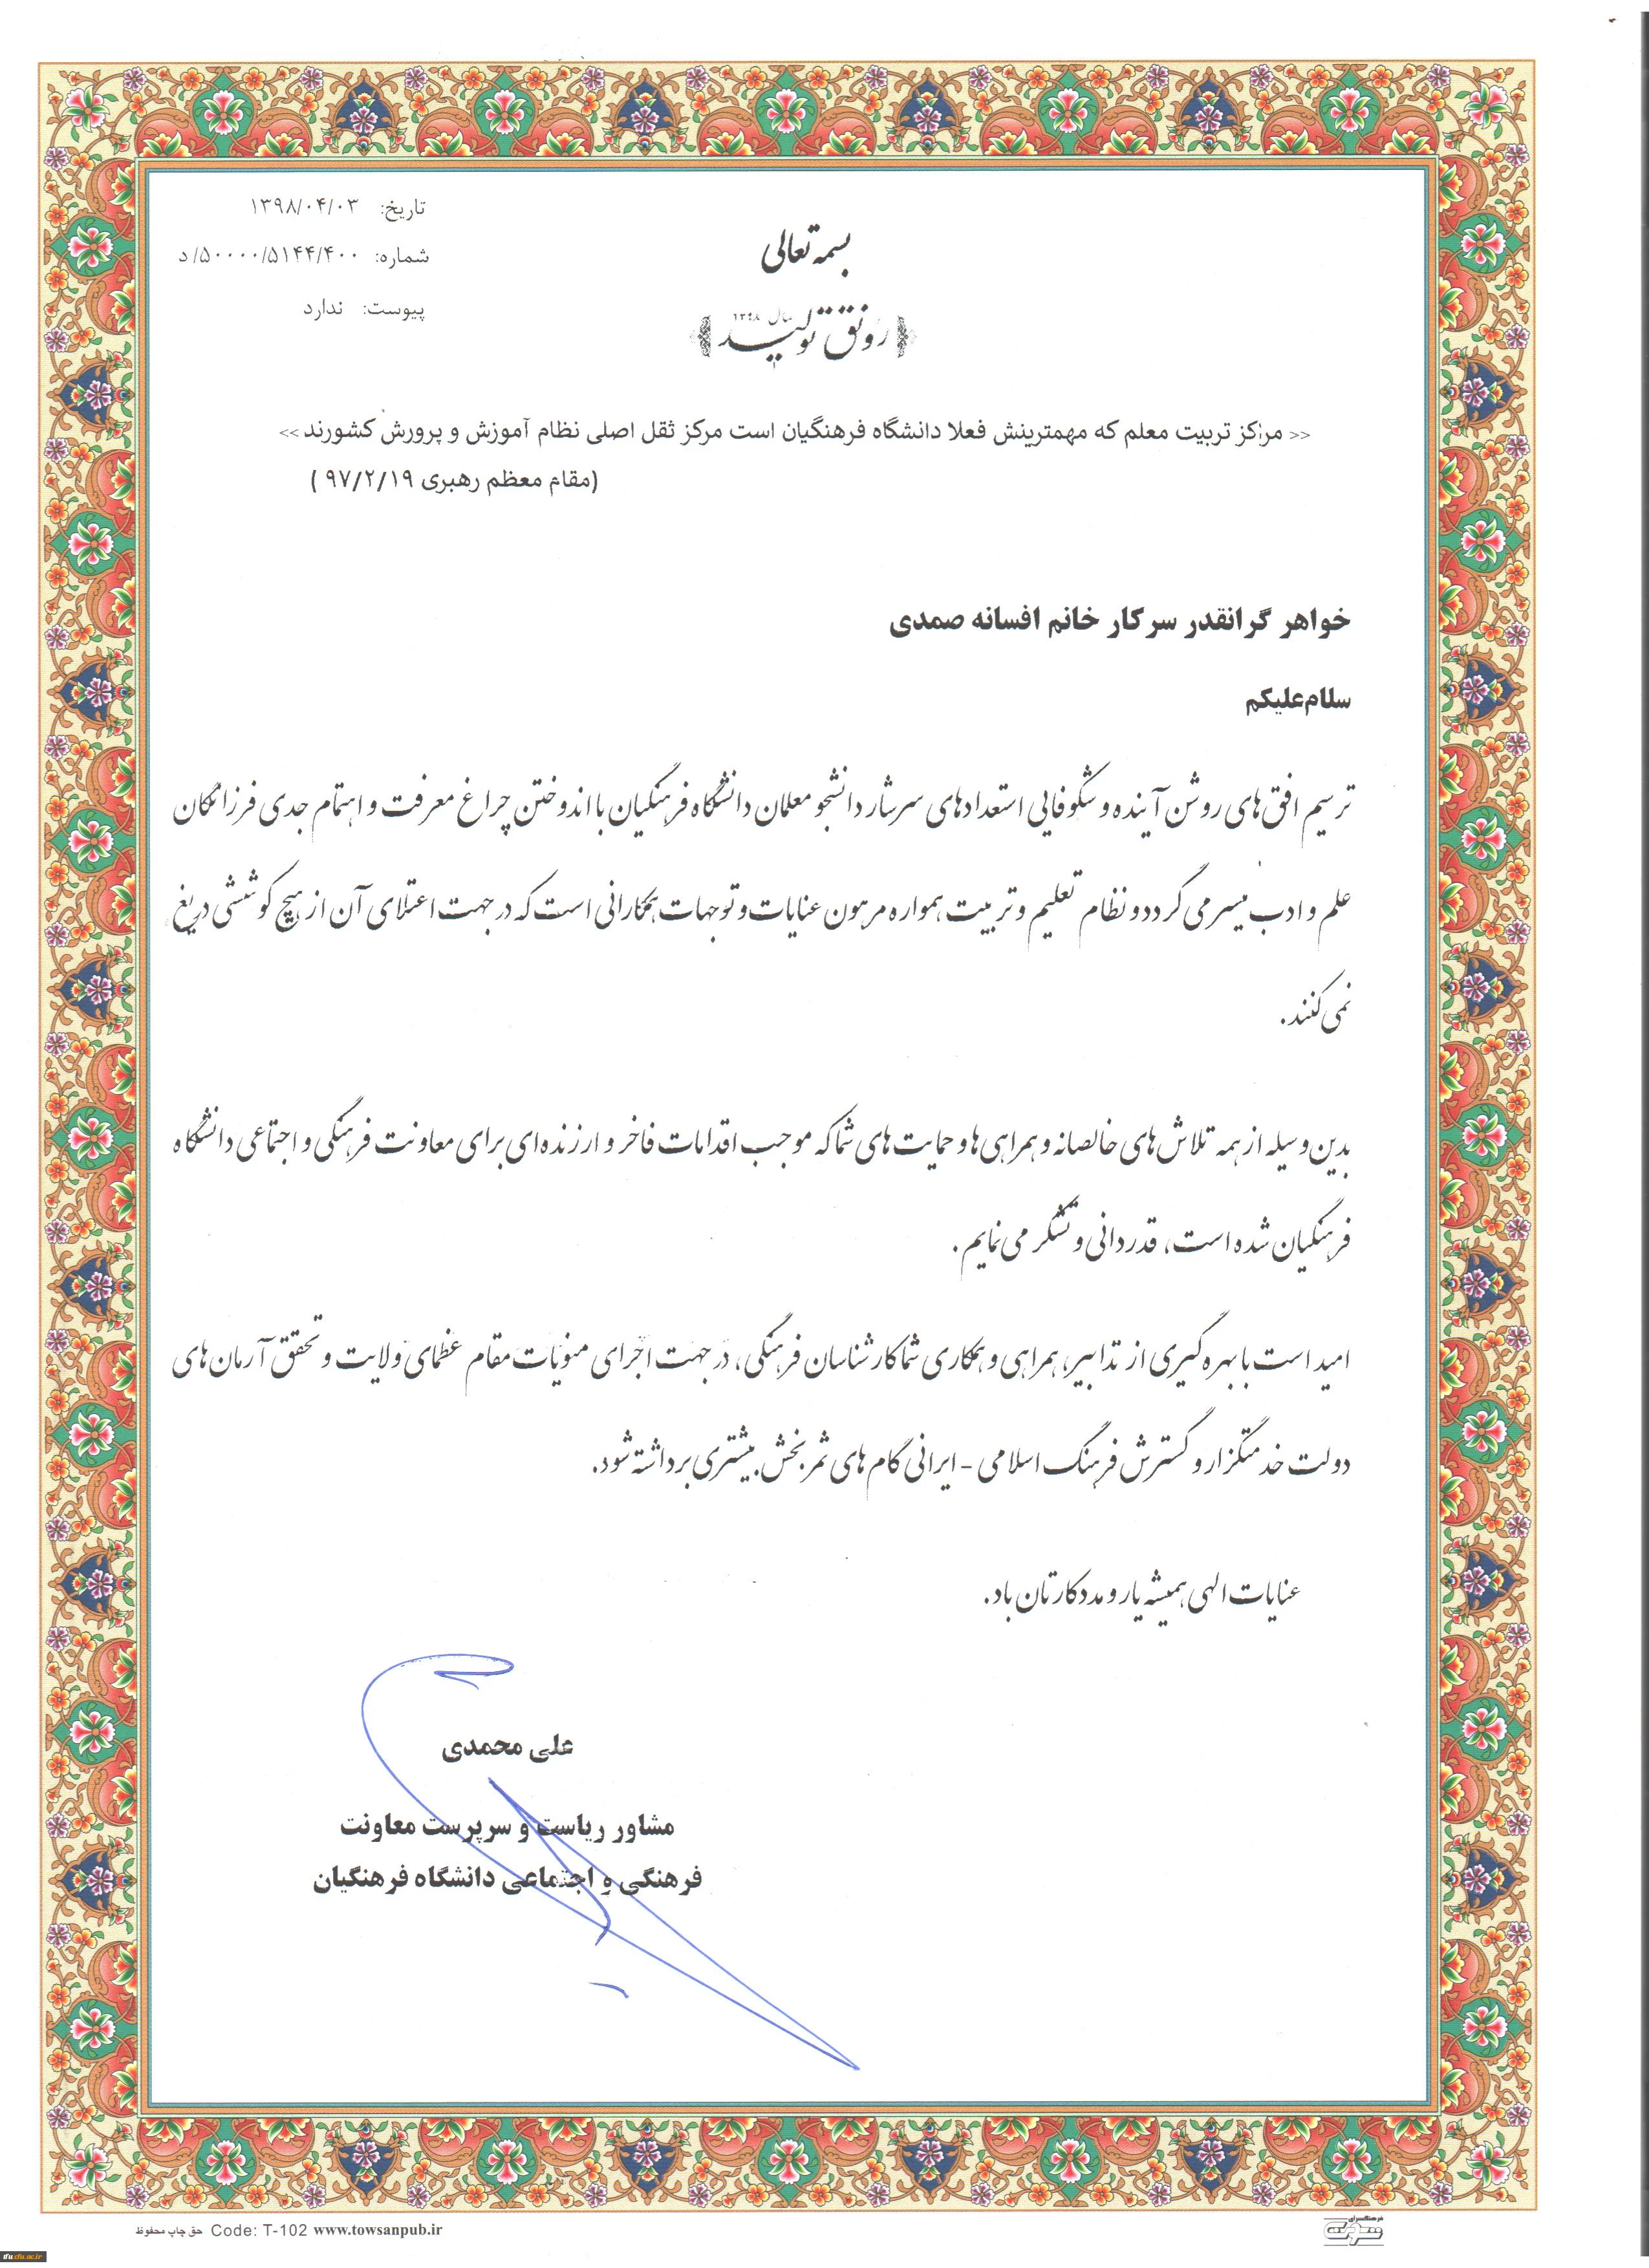 تاریخ: ۱۳۹۸/۰۴/۰۳
شماره: ۵۰۰۰۰/۵۱۴۴/۴۰۰/د
پیوست: ندارد
بسمه تعالی
سال ۱۳۹۸
رونق تولید
<< مراکز تربیت معلم که مهمترینش فعلا دانشگاه فرهنگیان است مرکز ثقل اصلی نظام آموزش و پرورش کشورند >>
(مقام معظم رهبری ۹۷/۲/۱۹ )
خواهر گرانقدر سرکار خانم افسانه صمدی
سلام‌علیکم
ترسیم افق‌های روشن آینده و شکوفایی استعدادهای سرشار دانشجو معلمان دانشگاه فرهنگیان با اندوختن چراغ معرفت و اهتمام جدی فرزانگان
علم و ادب میسر می گردد و نظام تعلیم و تربیت همواره مرهون عنایات و توجهات همکارانی است که در جهت اعتلای آن از هیچ کوششی دریغ
نمی‌کنند.
بدین وسیله از همه تلاش‌های خالصانه و همراهی‌ها و حمایت‌های شما که موجب اقدامات فاخر و ارزنده‌ای برای معاونت فرهنگی و اجتماعی دانشگاه
فرهنگیان شده است، قدردانی و تشکر می‌نمایم.
امید است با بهره گیری از تدابیر، همراهی و همکاری شما کارشناسان فرهنگی، در جهت اجرای منویات مقام عظمای ولایت و تحقق آرمان‌های
دولت خدمتگزار و گسترش فرهنگ اسلامی - ایرانی گام های ثمربخش بیشتری برداشته شود.
عنایات الهی همیشه یار و مددکارتان باد.
علی محمدی
مشاور ریاست و سرپرست معاونت
فرهنگی و اجتماعی دانشگاه فرهنگیان
حق چاپ محفوظ Code: T-102 www.towsanpub.ir